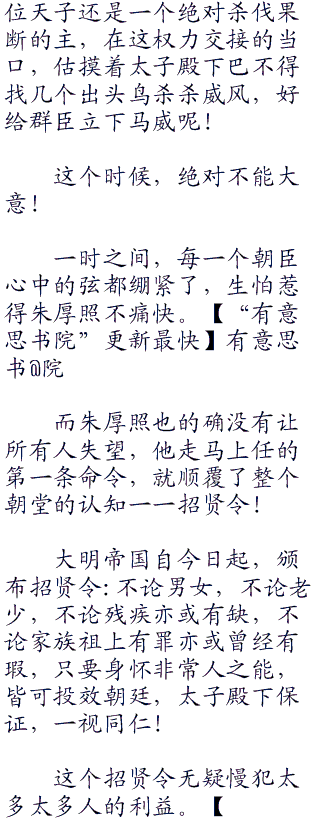 位天子还是一个绝对杀伐果
断的主，在这权力交接的当
口，估摸着太子殿下巴不得
找几个出头鸟杀杀威风，好
给群臣立下马威呢！
这个时候，绝对不能大
意！
一时之间，每一个朝臣
心中的弦都绷紧了，生怕惹
得朱厚照不痛快。【“有意
思书院”更新最快】有意思
书@院
而朱厚照也的确没有让
所有人失望，他走马上任的
第一条命令，就顺覆了整个
朝堂的认知一一招贤令！
大明帝国自今日起，颁
布招贤令：不论男女，不论老
少，不论残疾亦或有缺，不
论家族祖上有罪亦或曾经有
瑕，只要身怀非常人之能，
皆可投效朝廷，太子殿下保
证，一视同仁！
这个招贤令无疑慢犯太
多太多人的利益。【